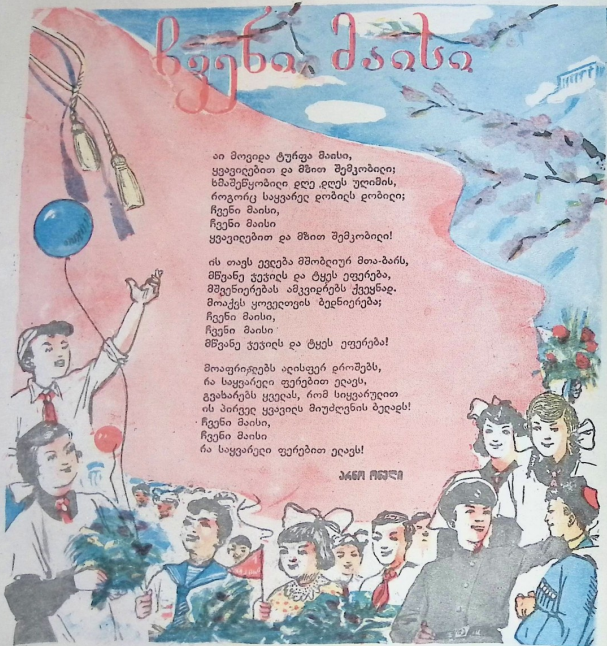 ჩვენი მაისი
აი მოვიდა ტურფა მაისი,
ყვავილებით და მზით შემკობილი;
ხმაშეწყობილი დღე დღეს ულიმის,
როგორც საყვარელ დობილს დობილი;
ჩვენი მაისი,
ჩვენი მაისი
ყვავილებით და მზით შემკობილი!
ის თავს ევლება მშობლიურ მთა-ბარს,
მწვანე ჯეჯილს და ტყეს ეფერება,
მშვენიერებას ამკვიდრებს ქვეყნად.
მოაქვს ყოველთვის ბედნიერება;
ჩვენი მაისი,
ჩვენი მაისი
მწვანე ჯეჯილს და ტყეს ეფერება!
მოაფრიალებს ალისფერ დროშებს,
რა საყვარელი ფერებით ელავს,
გვახარებს ყველას, რომ სიყვარულით
ის პირველ ყვავილს მიუძღვნის ბელადს!
ჩვენი მაისი,
ჩვენი მაისი
რა საყვარელი ფერებით ელავს!
არნო ონელი